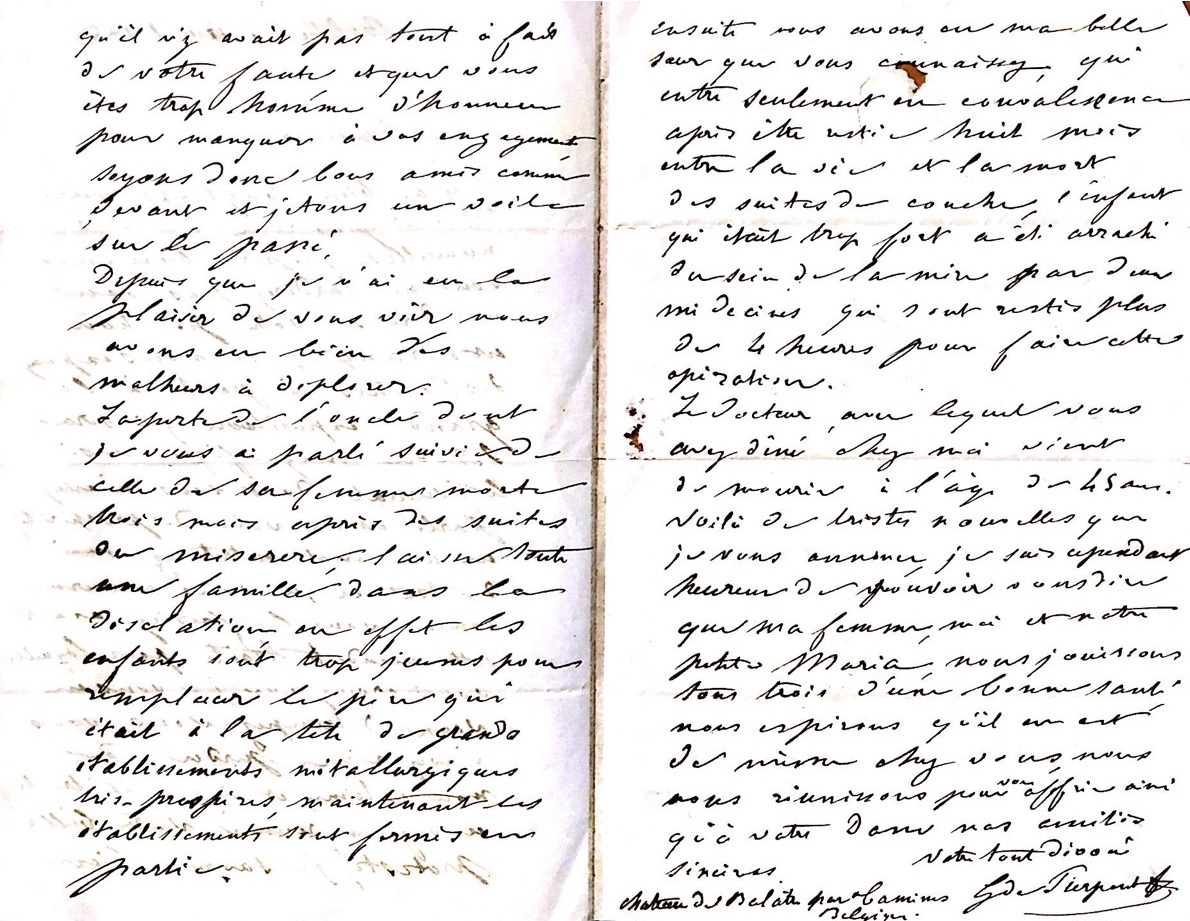 qu'il n'y avait pas tout à fait
de votre faute et que vous
êtes trop homme d'honneur
pour manquer à vos engagements
soyons donc bons amis comme
devant et jetons un voile
sur le passé,
Depuis que je n'ai eu le
plaisir de vous voir nous
avons eu bien des
malheurs à déplorer.
La perte de l'oncle dont
je vous ai parlé suivie de
celle de sa femme morte
trois mois après des suites
du miserere, laisse toute
une famille dans la
désolation, en effet les
enfants sont trop jeunes pour
remplacer le père qui
était à la tête de grands
établissements métallurgiques
très prospères, maintenant les
établissements sont fermés en
partie.
ensuite nous avons eu ma belle
sœur que vous connaissez, qui
entre seulement en convalescence
après être restée huit mois
entre la vie et la mort
des suites de couche, l'enfant
qui était trop fort a été arraché
du sein de la mère par deux
médecins qui sont restés plus
de 4 heures pour faire cette
opération.
Le Docteur, avec lequel vous
avez diné chez moi vient
de mourir à l'âge de 45 ans.
Voilà de tristes nouvelles que
je vous annonce, je suis cependant
heureux de pouvoir vous dire
que ma femme, moi et notre
petite Maria, nous jouissons
tous trois d'une bonne santé
nous espérons qu'il en est
de même chez vous, nous
nous réunissons pour vous offrir ainsi
qu'à votre Dame nos amitiés
sincères.
Votre tout dévoué
G de Pierpont
château de Balâtre par Tamines
Belgique.